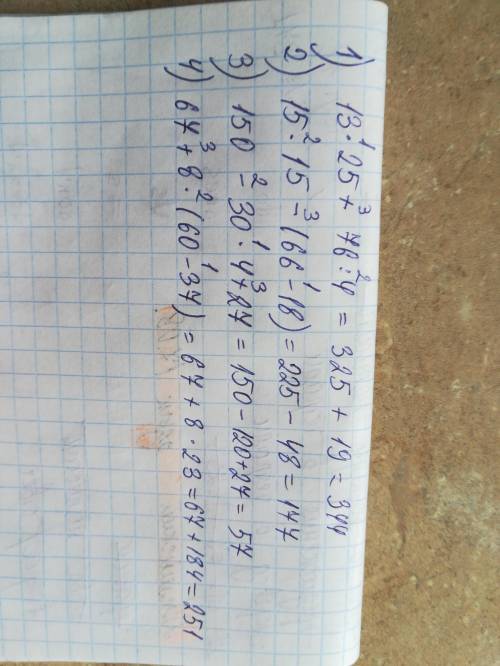 1) 13 ·¹ 25 +³ 76 :² 4 = 325 + 19 = 344
2) 15 ·² 15 -³ (66 -¹ 18) = 225 - 48 = 177
3) 150 -² 30 ·¹ 4 +³ 27 = 150 - 120 + 27 = 57
4) 67 +³ 8 ·² (60 -¹ 37) = 67 + 8 · 23 = 67 + 184 = 251